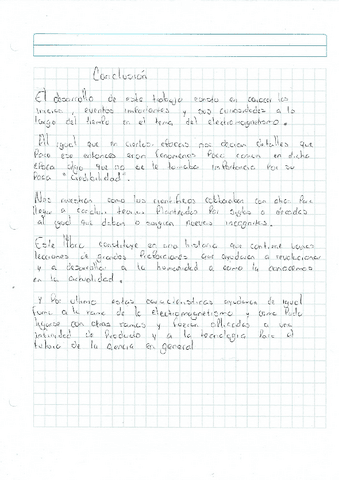 Conclusión
El desarrollo de este trabajo consto en conocer los
, eventos importantes y sus curiosidades a lo
largo del tiempo en el tema del electromagnetismo.
Al igual que en ciertas epocas nos decian detalles que
Para ese entonces eran fenomenos Poco en dicha
epoca que no se le tomaba importancia Por su
Poca "Credibilidad".
Nos muestran como los cientificos con otros Para
llegar a teorias Planteadas Por siglos o decadas
al igual que daban o surgian nuevas incognitas.
Este libro constituye en una historia que contiene
lecciones de grandes que ayudaron a revolucionar
y a desarrollar a la humanidad a como la conocemos
en la actualidad.
Y Por ultimo estas caracteristicas ayudaron de igual
forma a la rama de la Electromagnetismo y como Pudo
ligarse con otras ramas y fueron a una
infinidad de Producto y a la tecnologia Para el
futuro de la ciencia en general